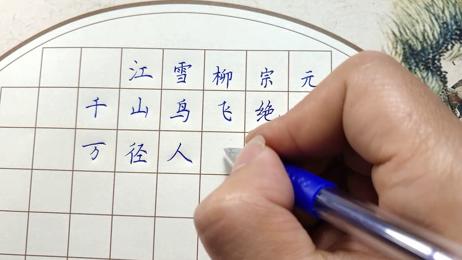 江雪柳宗元
千山鸟飞绝
万径人